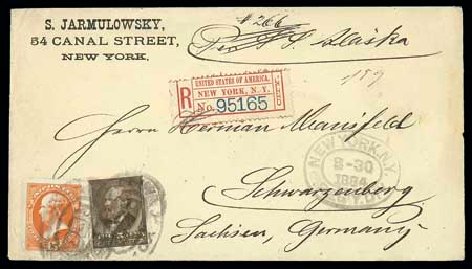 S. JARMULOWSKY,
54 CANAL STREET,
NEW YORK.
# 266
Per S. S. Alaska
UNITED STATES OF AMERICA.
NEW YORK, N.Y.
R No. 95165
Herrn Herman Mansfeld
Schwarzenberg
Sachsen, Germany
NEW YORK, N.Y.
8-30
1884